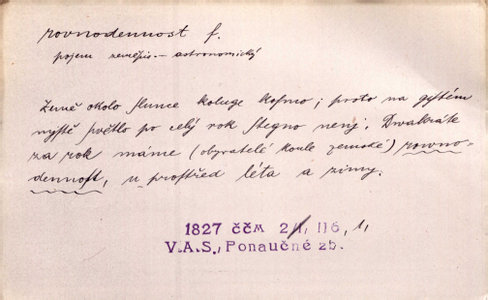 rovnodennost f.
pojem zeměpis.-astronomický
Země okolo slunce koluge kosmo; proto na gistém
mjstě swětlo po celý rok stegno nenj. Dwakráte
za rok máme (obywatelé koule zemské) rowno-
dennost, u prostřed léta a zimy.
1827 ččm 2/1, 116, 1,
V.A.S., Ponaučné zb.